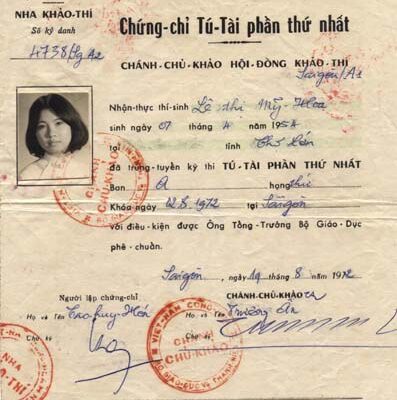 NHA KHẢO-THÍ
Số ký danh
4738/Sg A2
Chứng-chỉ Tú-Tài phần thứ nhất
CHÁNH-CHỦ-KHẢO HỘI-ĐỒNG KHẢO THÍ
Saigon/A1
Nhận-thực thí-sinh Lê thị Mỹ-Hoa
sinh ngày 07 tháng 4 năm 1954
tại tỉnh Chợ Lớn
đã trúng-tuyển kỳ thi TÚ-TÀI PHẦN THỨ NHẤT
Ban A hạng thứ
Khóa ngày 12.8.1972 tại Saigon
với điều-kiện được Ông Tổng-Trưởng Bộ Giáo-Dục
phê-chuẩn.
Saigon, ngày 19 tháng 8 năm 1972
Người lập chứng-chỉ
CHÁNH-CHỦ-KHẢO
Họ và Tên Cao huy Hớn
Họ và Tên Trường Ân
Chữ ký
Chữ ký
CHÁNH
CHỦ-KHẢO
VIỆT-NAM CỘNG
CHÁNH
CHỦ-KHẢO
BỘ GIÁO-DỤC
NHA
KHẢO-THÍ